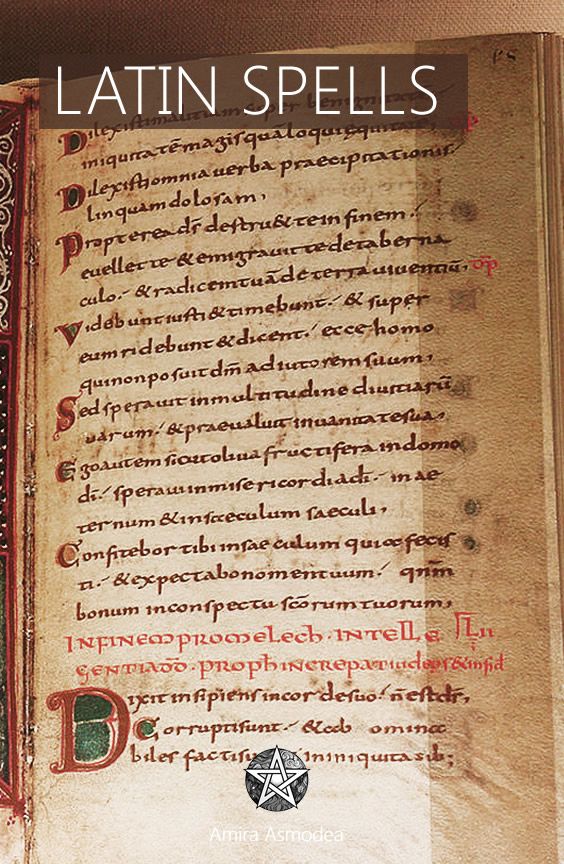 LATIN SPELLS
Dilexisti malitiam super benignitatē
iniquitatē magis qua loqui equitatē
Dilexisti omnia verba praecipitationis
linguam dolosam,
Propterea ds̄ destru& te in finem
evellet te & emigravit te de taberna
culo & radicem tuā de terra viventiū,
Videbunt iusti & timebunt & super
eum ridebunt & dicent ecce homo
qui non posuit dm̄ adiutorem suum,
Sed speravit in multitudine divitiarū
suarum & praevaluit in vanitate sua,
Ego autem sicut oliva fructifera in domo
di speravi in misericordia di in ae
ternum & in saeculum saeculi,
Confitebor tibi in saeculum quia fecis
ti & expectabo nomen tuum qnm̄
bonum in conspectu scōrum tuorum,
IN FINEM PRO MELECH INTELLE
Dixit insipiens in corde suo n̄ est ds̄,
Corrupti sunt & ab omina
biles facti sunt in iniquitatib;
Amira Asmodea